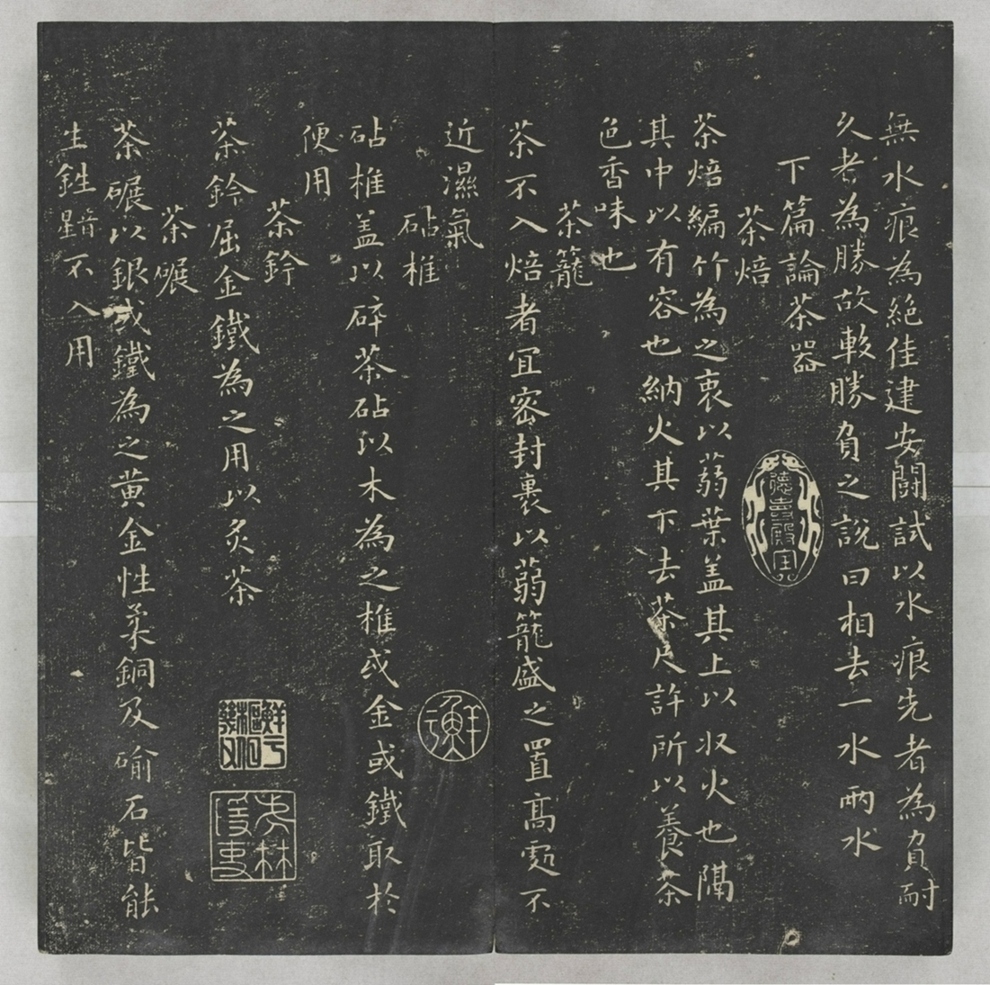 無水痕為絕佳建安鬪試以水痕先者為負耐
久者為勝故較勝負之說曰相去一水兩水
下篇論茶器
茶焙
茶焙編竹為之裹以蒻葉盖其上以収火也隔
其中以有容也納火其下去茶尺許所以養茶
色香味也
茶籠
茶不入焙者宜密封裹以蒻籠盛之置高處不
近濕氣
砧椎
砧椎盖以碎茶砧以木為之椎或金或鐵取於
便用
茶鈐
茶鈐屈金鐵為之用以炙茶
茶碾
茶碾以銀或鐵為之黄金性柔銅及石皆能
生鉎音星不入用
德壽殿寶
鮮于
鮮于樞伯幾父